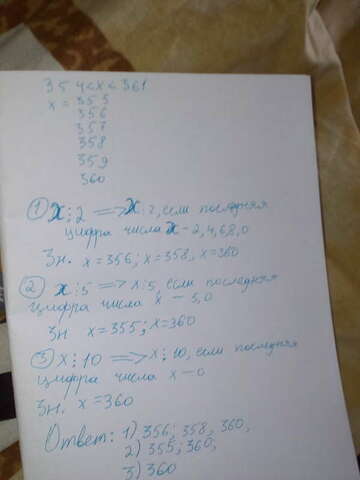 354<x<361
x = 355
356
357
358
359
360
① x⋮2 => x⋮2, если последняя
цифра числа x - 2,4,6,8,0
Зн. x=356; x=358, x=360
② x⋮5 => x⋮5, если последняя
цифра числа x - 5,0
Зн x=355; x=360
③ x⋮10 => x⋮10, если последняя
цифра числа x-0
Зн. x=360
Ответ: 1) 356; 358, 360,
2) 355; 360,
3) 360